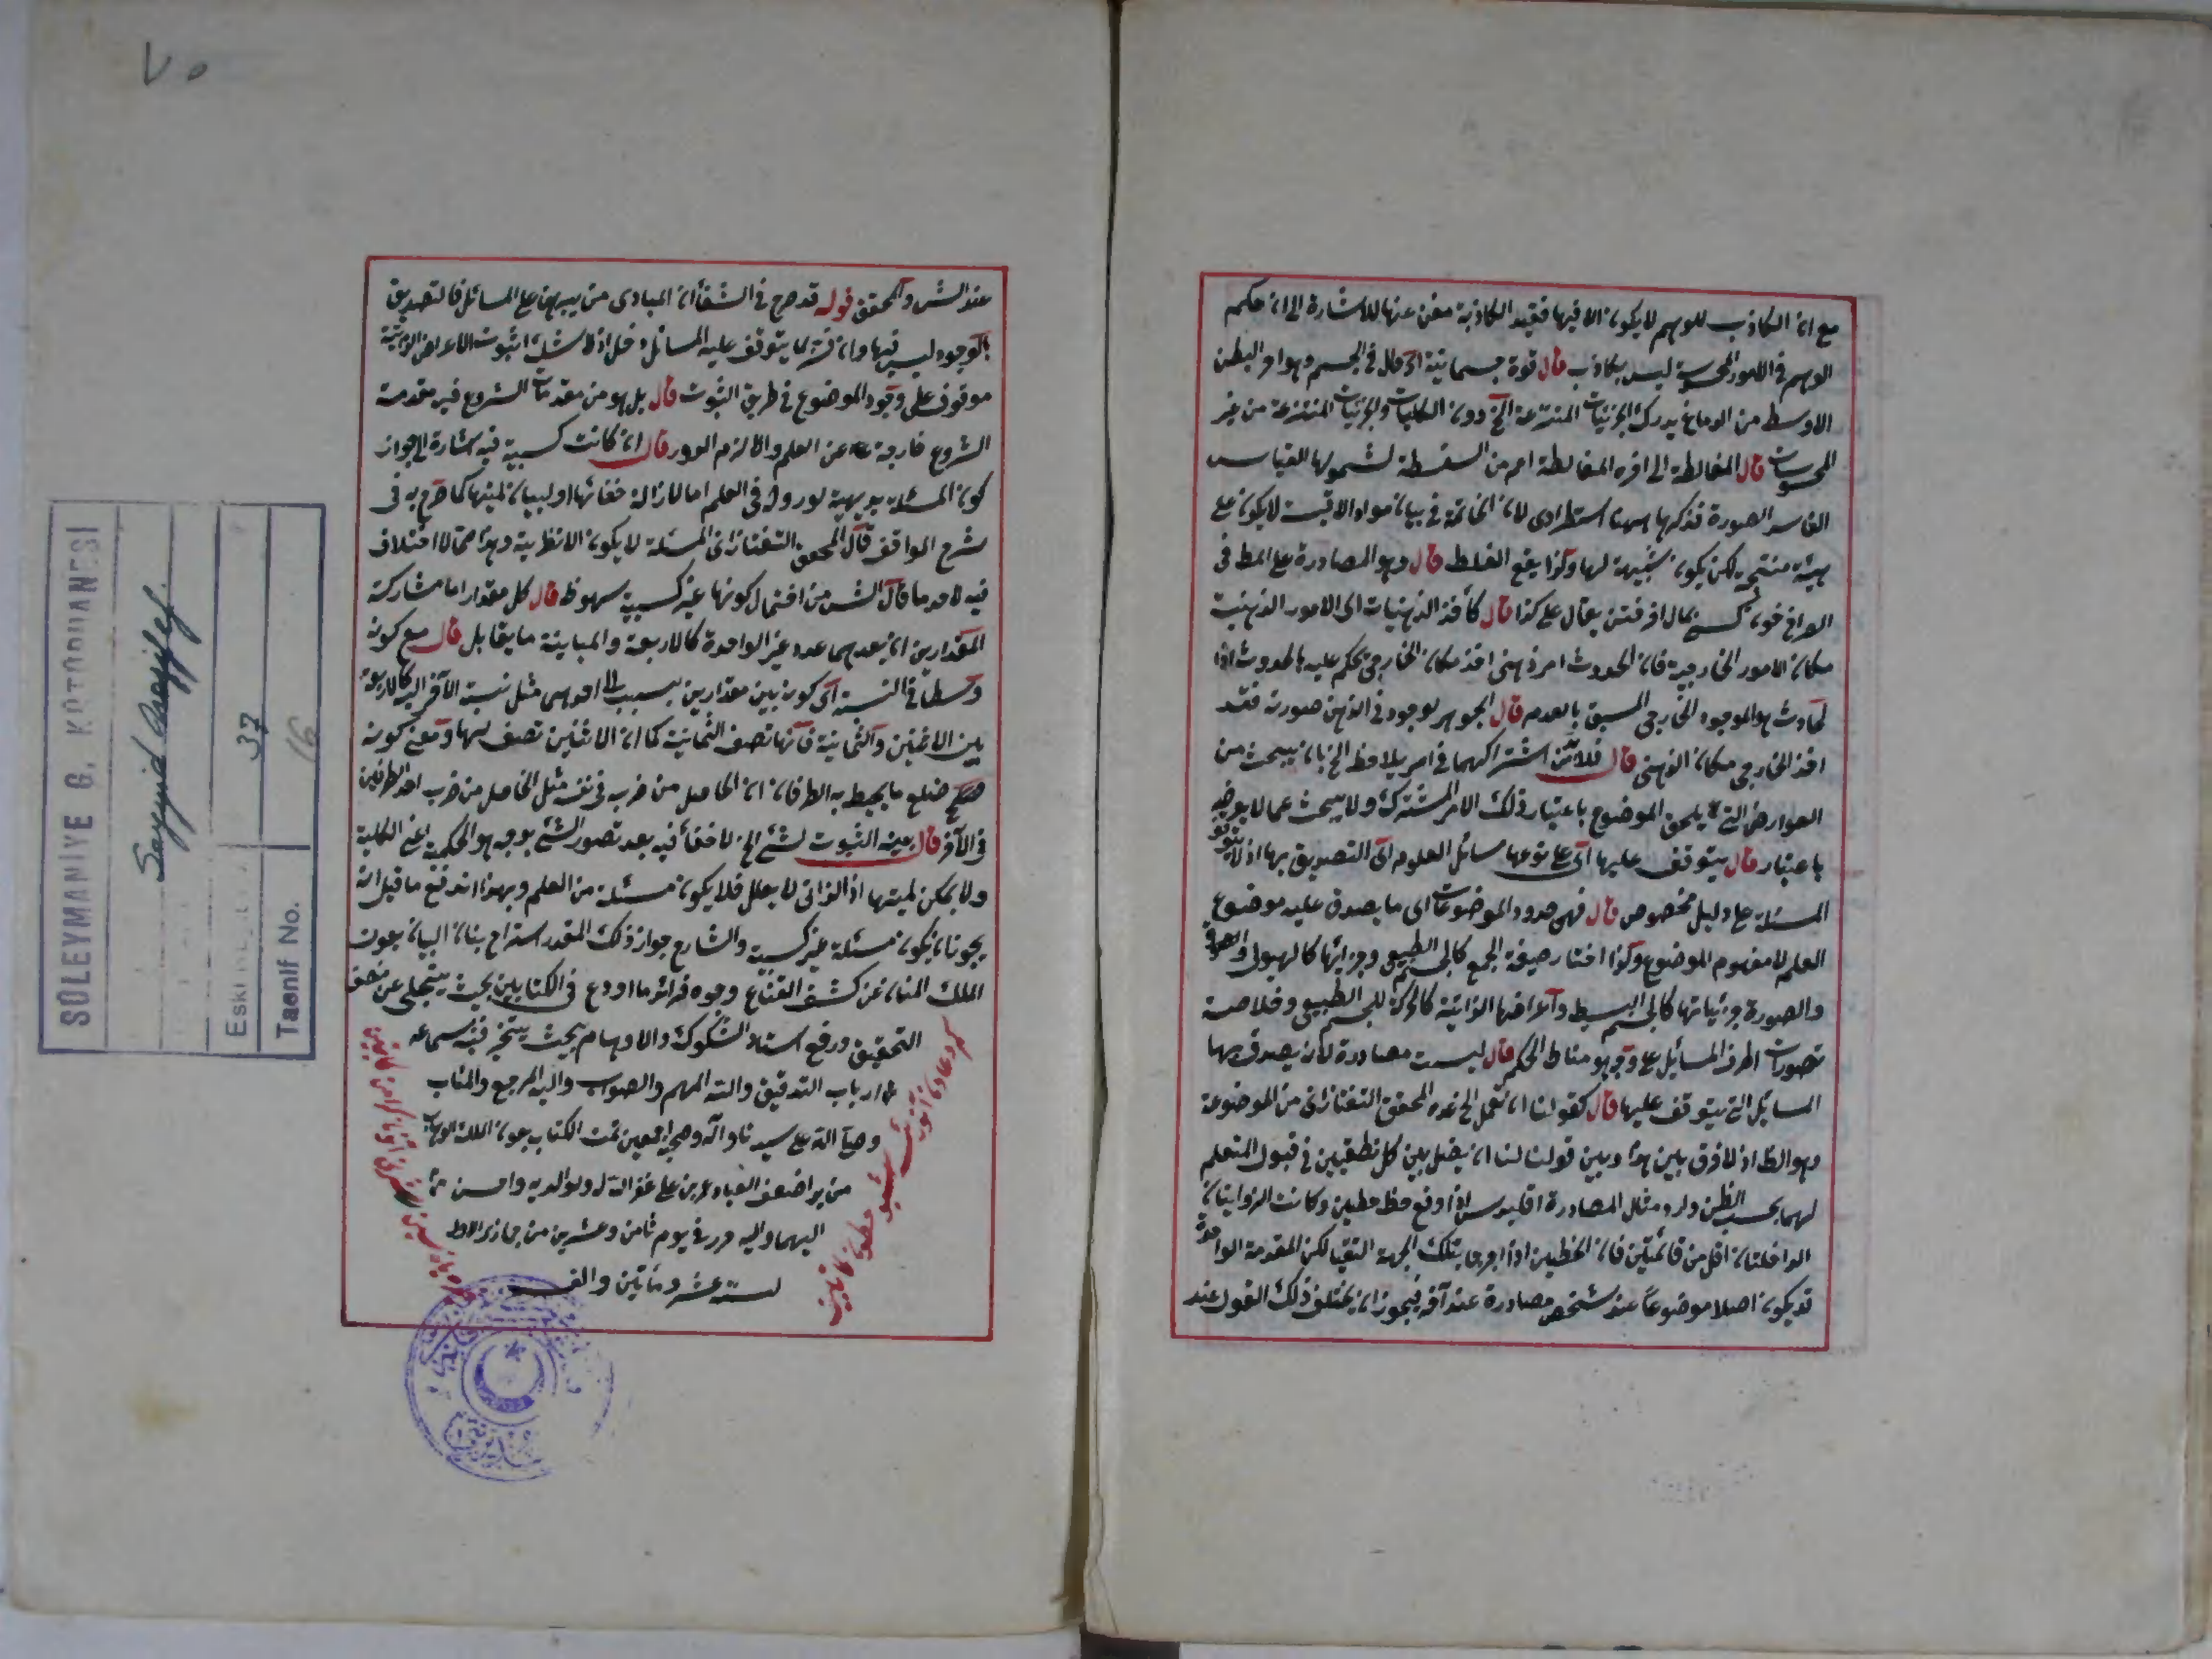 مع ان الكاذب للوهم لا يكون الا فيها فقيد الكاذبة مغن عنها للاشارة الى ان حكم
الوهم في الامور المحسوسة ليس بكاذب قال قوة جسمانية اى حال في الجسم وهو آخر البطن
الاوسط من الدماغ يدرك الجزئيات المنتزعة الخ دون الكليات والجزئيات المنتزعة من غير
المحسوسات قال المغالطة الى آخره المغالطة اعم من السفسطة لشمولها القياس
الفاسد الصورة فذكرها ههنا استطرادى لان الخاتمة في بيان مواد الاقيسة لا يكون على
هيئة منتجة لكن يكون شبيهة لها وكذا يقع الغلط قال وهو المصادرة على المط في
قال كأخذ الذهنيات اى الامور الذهنية
مكان الامور الخارجية فان الحدوث امر ذهنى اخذ مكان الخارجى حكم عليه بالحدوث اذا
لحادث هو الموجود الخارجى المسبق بالعدم قال الجوهر لوجوده في الذهن صورته فقد
اخذ الخارجى مكان الذهنى قال فلابد من اشتراكهما في امر يلاحظ الخ بان يبحث من
العوارض التى يلحق الموضوع باعتبار ذلك الامر المشترك ولا يبحث عما لا يعرضه
باعتبار قال يتوقف عليها اى على نوعها مسائل العلوم اى التصديق بها اذ لا يتوقف
المسئلة على دليل مخصوص قال فهى حدود الموضوعات اى ما يصدق عليه موضوع
العلم لا مفهوم الموضوع وكذا اختار صيغة الجمع كالجسم الطبيعى وجزائها كالهيولى
والصورة جزئياتها كالجسم البسيط واعراضها الذاتية كالحركة للجسم الطبيعى وخلاصة
تصورات اطراف المسائل على وجه هو مناط الحكم قال ليست مصادرة لان يصدق بها
المسائل التى يتوقف عليها قال كقولنا ان نعمل الخ عده المحقق التفتازانى من الموضوعة
وهو الظ اذ لا فرق بين هذا وبين قولنا لنا ان يصل بين كل نقطتين في قبول المتعلم
لهما بحسن الظن واورد مثال المصادرة اقليدس اذا وقع خط خطين وكانت الزوايتان
الداخلتان اقل من قائمتين فان الخطين اذا اخرجا بتلك الجهة التقيا لكن المقدمة الواحدة
قد يكون اصلا موضوعا عند شخص مصادرة عند آخر فيجوز ان يختلف ذلك القول عند
٧٥
عند الش والمحقق قوله قد صرح في الشفاء ان المبادى من يبرهن على المسائل فالتصديق
بالوجود ليس فيها وان فسر بما يتوقف عليه المسائل دخل اذ لا شك ان ثبوت الاعراض الذاتية
موقوف على وجود الموضوع في طريق الثبوت قال بل هو من مقدمات الشروع فيه مقدمة
الشروع خارجة عن العلم والا لزم الدور قال ان كانت كسبية فيه اشارة الى جواز
كون المسئلة بديهية لورودها في العلم اما لازالة خفائها او لبيان لميتها كما صرح به في
شرح المواقف قال المحقق التفتازانى المسئلة لا يكون الا نظرية وهذا مما لا اختلاف
فيه لاحد ما قال الش من احتمال كونها غير كسبية سهو ظ قال كل مقدار اما مشاركة
المقدارين ان يعدهما عدد غير الواحد كالاربعة والمباينة ما يقابل قال مع كونه
وسطا في النسبة اى كونه بين مقدارين مثل نسبة الآخر اليه كالاربعة
بين الاثنين والثمانية فانها نصف الثمانية كما ان الاثنين نصف لها ومعنى كونه
ضلع ما يحيط به الطرفان ان الحاصل من ضربه في نفسه مثل الحاصل من ضرب احد الطرفين
في الآخر قال بينة الثبوت لشئ الخ لا خفأ فيه بعد تصور الشئ بوجه هو الحكمية اعنى الكلية
ولا يمكن لميتها اذ الذاتى لا يعلل فلا يكون مسئلة من العلم وبهذا اندفع ما قيل انه
يجوز ان يكون مسئلة غير كسبية والشارح جواز ذلك المقدر استراح بنان البيان بعون
الملك المنان عن كشف القناع وجوه فرائد ما اودع في الكتابين بحيث يتجلى عن
التحقيق ورفع استار الشكوك والاوهام بحيث يتحير فيه سماعه
ارباب التدقيق والله الملهم والصواب واليه المرجع والمئاب
وصلى الله على سيدنا وآله وصحبه اجمعين تمت الكتاب بعون الملك الوهاب
من يد اضعف العباد عمر بن على غفر الله له ولوالديه واحسن
اليهما واليه حرر في يوم ثامن وعشرين من جماذى
لسنة عشر ومأتين والف
SÜLEYMANİYE G. KÜTÜPHANESİ
Seyyid
Eski
37
Tasnif No.
16